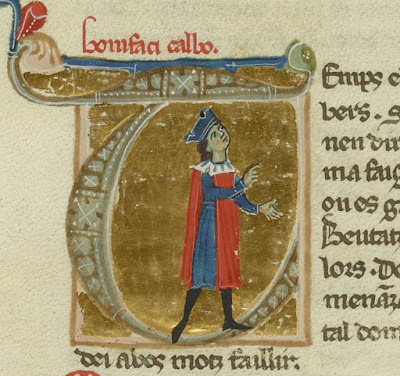 bonifaci calbo.
TEmps e
bers. S
nen dir
ma faig
on es g
Beutatz
lors. De
menaz
tal dom
dei abos motz faillir.